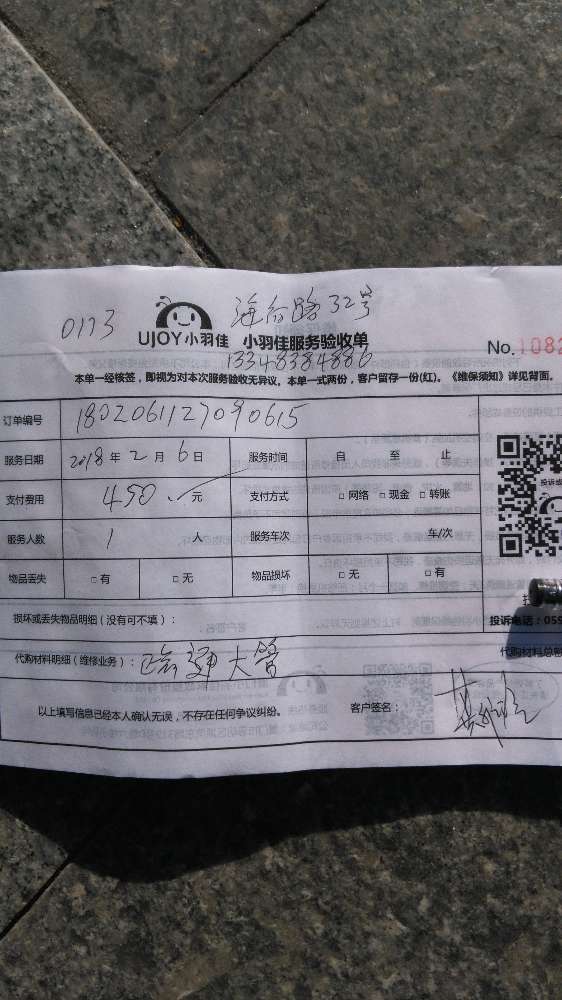 0173 路32号
UJOY小羽佳 小羽佳服务验收单 No. 1082
13348384886
本单一经核签，即视为对本次服务验收无异议。本单一式两份，客户留存一份(红)。《维保须知》详见背面。
订单编号 1802061127090615
服务日期 2018年2月6日 服务时间 自 至 止
支付费用 450 元 支付方式 □网络 □现金 □转账
服务人数 1 人 服务车次 车/次
物品丢失 □有 □无 物品损坏 □无 □有
损坏或丢失物品明细（没有可不填）：
投诉电话：059
代购材料明细（维修业务）： 疏通大管 代购材料总
以上填写信息已经本人确认无误，不存在任何争议纠纷。 客户签名：